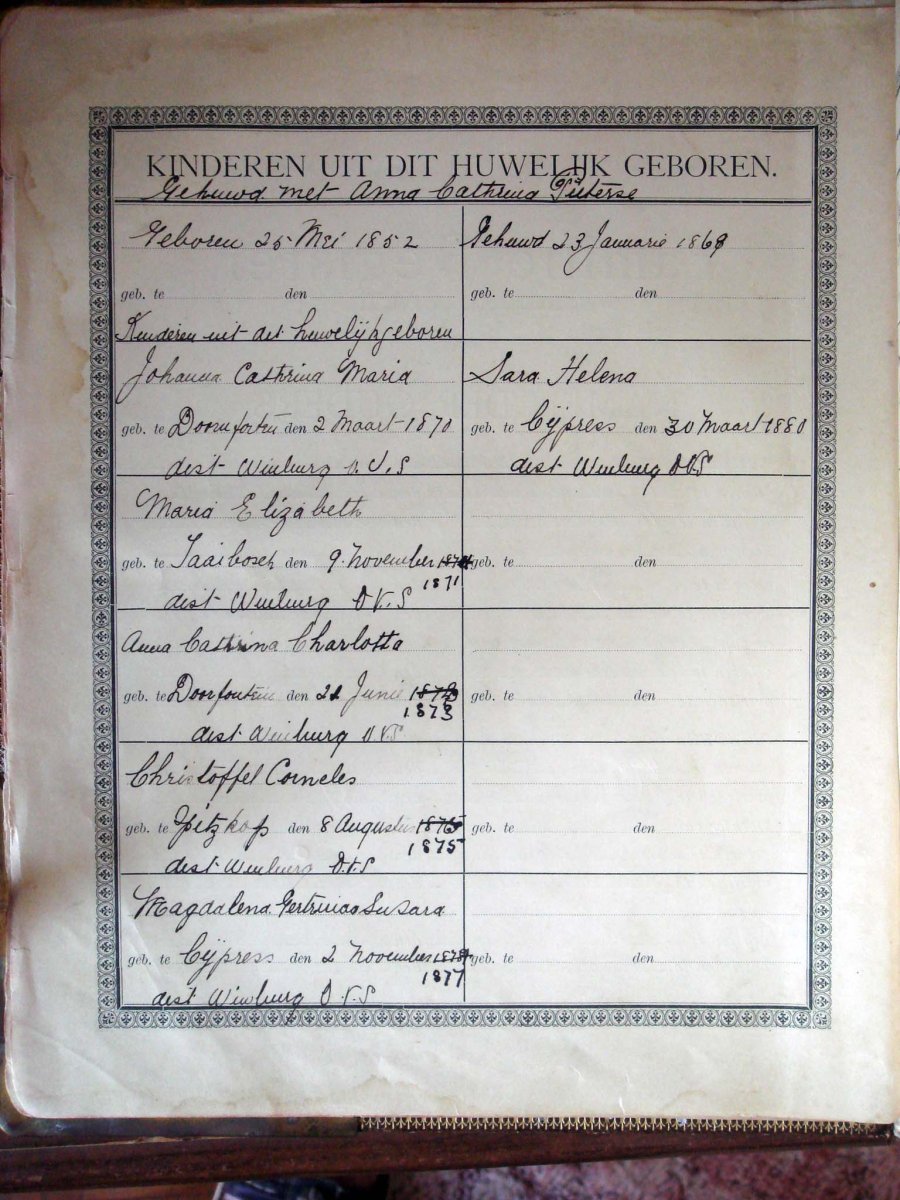 KINDEREN UIT DIT HUWELIJK GEBOREN.
Gehuwd met Anna Cathrina Pieterse
Geboren 25 Mei 1852
geb. te den
Kinderen uit dit huwelijk geboren
Johanna Cathrina Maria
geb. te Doornfontein den 2 Maart 1870
dist Winburg O.V.S
Maria Elizabeth
geb. te Taaibosch den 9 November
1871
dist Winburg O V.S
Anna Cathrina Charlotta
geb. te Doorfontein den 21 Junie
1873
dist Winburg O V S
Christoffel Corneles
geb. te Spitzkop den 8 Augustus 1876
1875
dist Winburg O.V.S
Magdalena Gertruida Susara
geb. te Cÿpress den 2 November
1877
dist Winburg O.V.S
Gehuwd 23 Januarie 1869
geb. te den
Sara Helena
geb. te Cÿpress den 30 Maart 1880
dist Winburg O.V.S
geb. te den
geb. te den
geb. te den
geb. te den